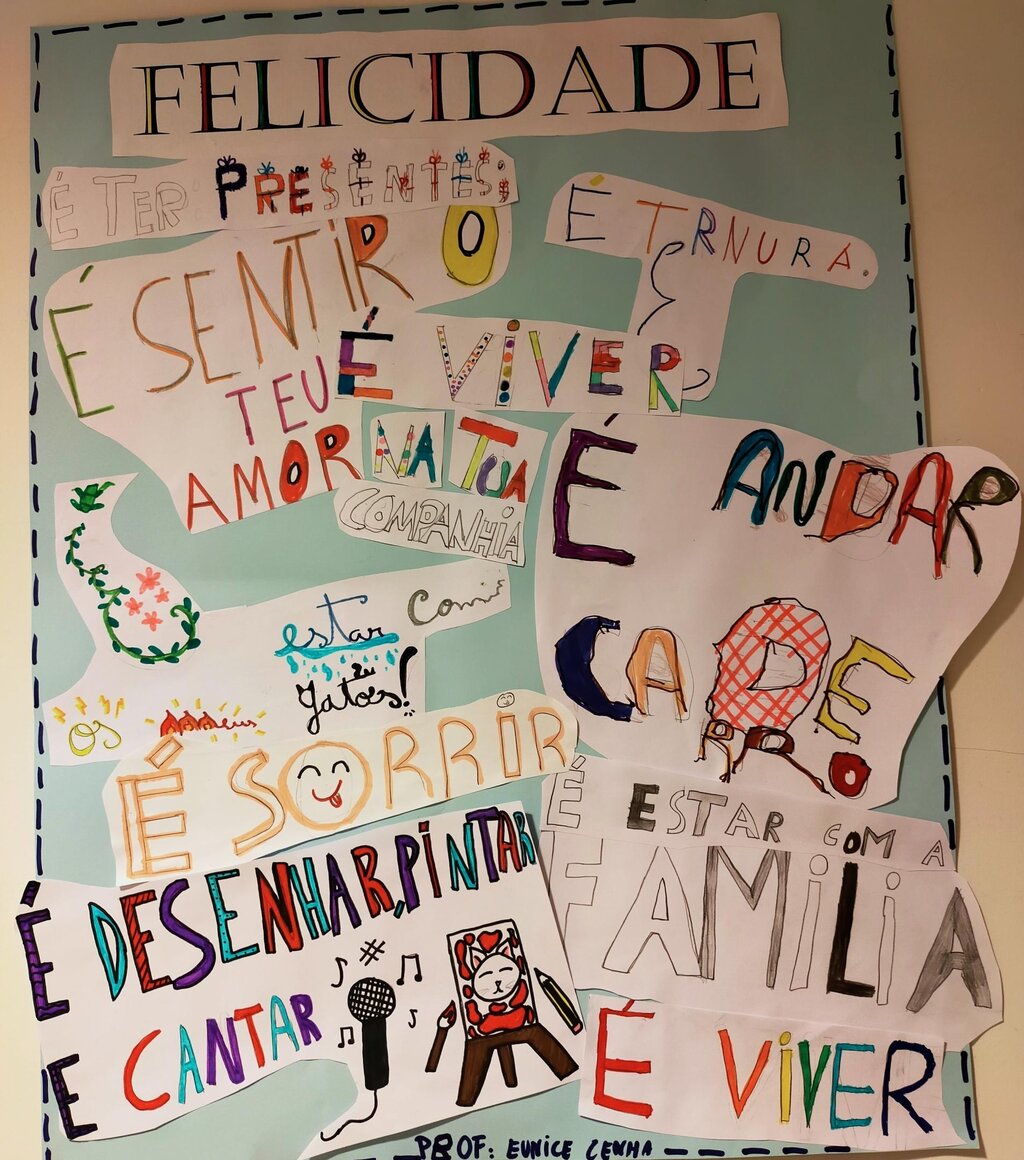 FELICIDADE
É TER PRESENTES;
É TERNURA.
É SENTIR O
TEU
AMOR
É VIVER
NA TUA
COMPANHIA
É ANDAR
DE
CARRO
É estar com
os meus gatões!
É SORRIR
É ESTAR COM A
FAMÍLIA
É DESENHAR, PINTAR
E CANTAR
É VIVER
PROF: EUNICE CENHA